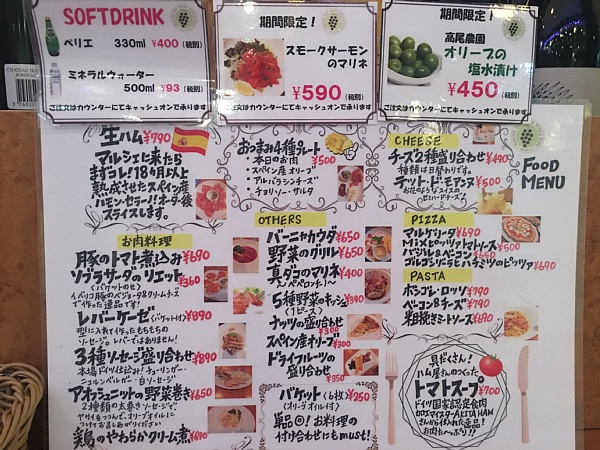 SOFTDRINK
ペリエ 330ml ¥400(税別)
ミネラルウォーター
500ml ¥93(税別)
ご注文はカウンターにてキャッシュオンで承ります
期間限定!
スモークサーモン
のマリネ
¥590(税別)
ご注文はカウンターにてキャッシュオンで承ります
期間限定!
高尾農園
オリーブの
塩水漬け
¥450(税別)
ご注文はカウンターにてキャッシュオンで承ります
FOOD
MENU
生ハム ¥790
マルシェに来たら
まずコレ!18ヶ月以上
熟成させたスペイン産
ハモン・セラーノ!オーダー後
スライスします。
お肉料理
豚のトマト煮込み ¥690
ソブラサーダのリエット ¥360
(バケットのせ)
イベリコ豚のペジョータ&クリームチーズ
で作った逸品です!
レバーケーゼ(バケット付) ¥890
型に入れて作ったもちもちの
ソーセージ。レバーではありません!
3種ソーセージ盛り合わせ ¥890
本場ドイツ仕込み!チューリンガー・
ニュルンベルガー・白ソーセージ
アオッシュニットの野菜巻き ¥650
2種類の太巻きソーセージで、
鶏のやわらかクリーム煮 ¥690
おつまみ4種プレート
本日のお肉 ¥500
・スペイン産 オリーブ
・アルバラシンチーズ
・チョリソー・サルタ
OTHERS
バーニャカウダ ¥650
野菜のグリル ¥650
真ダコのマリネ ¥400
5種野菜のキッシュ ¥390
(1ピース)
ナッツの盛り合わせ ¥300
スペイン産オリーブ ¥300
ドライフルーツの
盛り合わせ ¥350
バケット(6枚) ¥250
(オリーブオイル付)
単品◎!お料理の
付け合わせにもmust!
CHEESE
チーズ2種盛り合わせ ¥490
種類は日替わりです。
テット・ド・モアンヌ ¥500
お花のようなスイスの
セミハードチーズ♪
PIZZA
マルゲリータ ¥690
Mixピッツァ トマトソース ¥500
バジル&ベーコン ¥650
ゴルゴンゾーラとハチミツのピッツァ ¥690
PASTA
ポシゴレ・ロッソ ¥790
ベーコン&チーズ ¥790
粗挽きミートソース ¥690
具だくさん!
ハム屋さんのつくった
トマトスープ ¥700
ドイツ国家認定食肉
加工マスターAKITA HAM
さんから仕入れた逸品!
お肉たっぷり!!